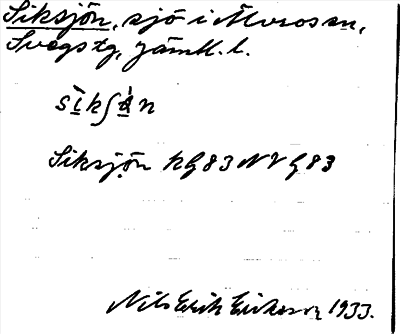 Siksjön, sjö i Älvros sn,
Svegs tg, Jämtl. l.
Siksjön hG83NVG83
Nils Erik Eriksson 1933.